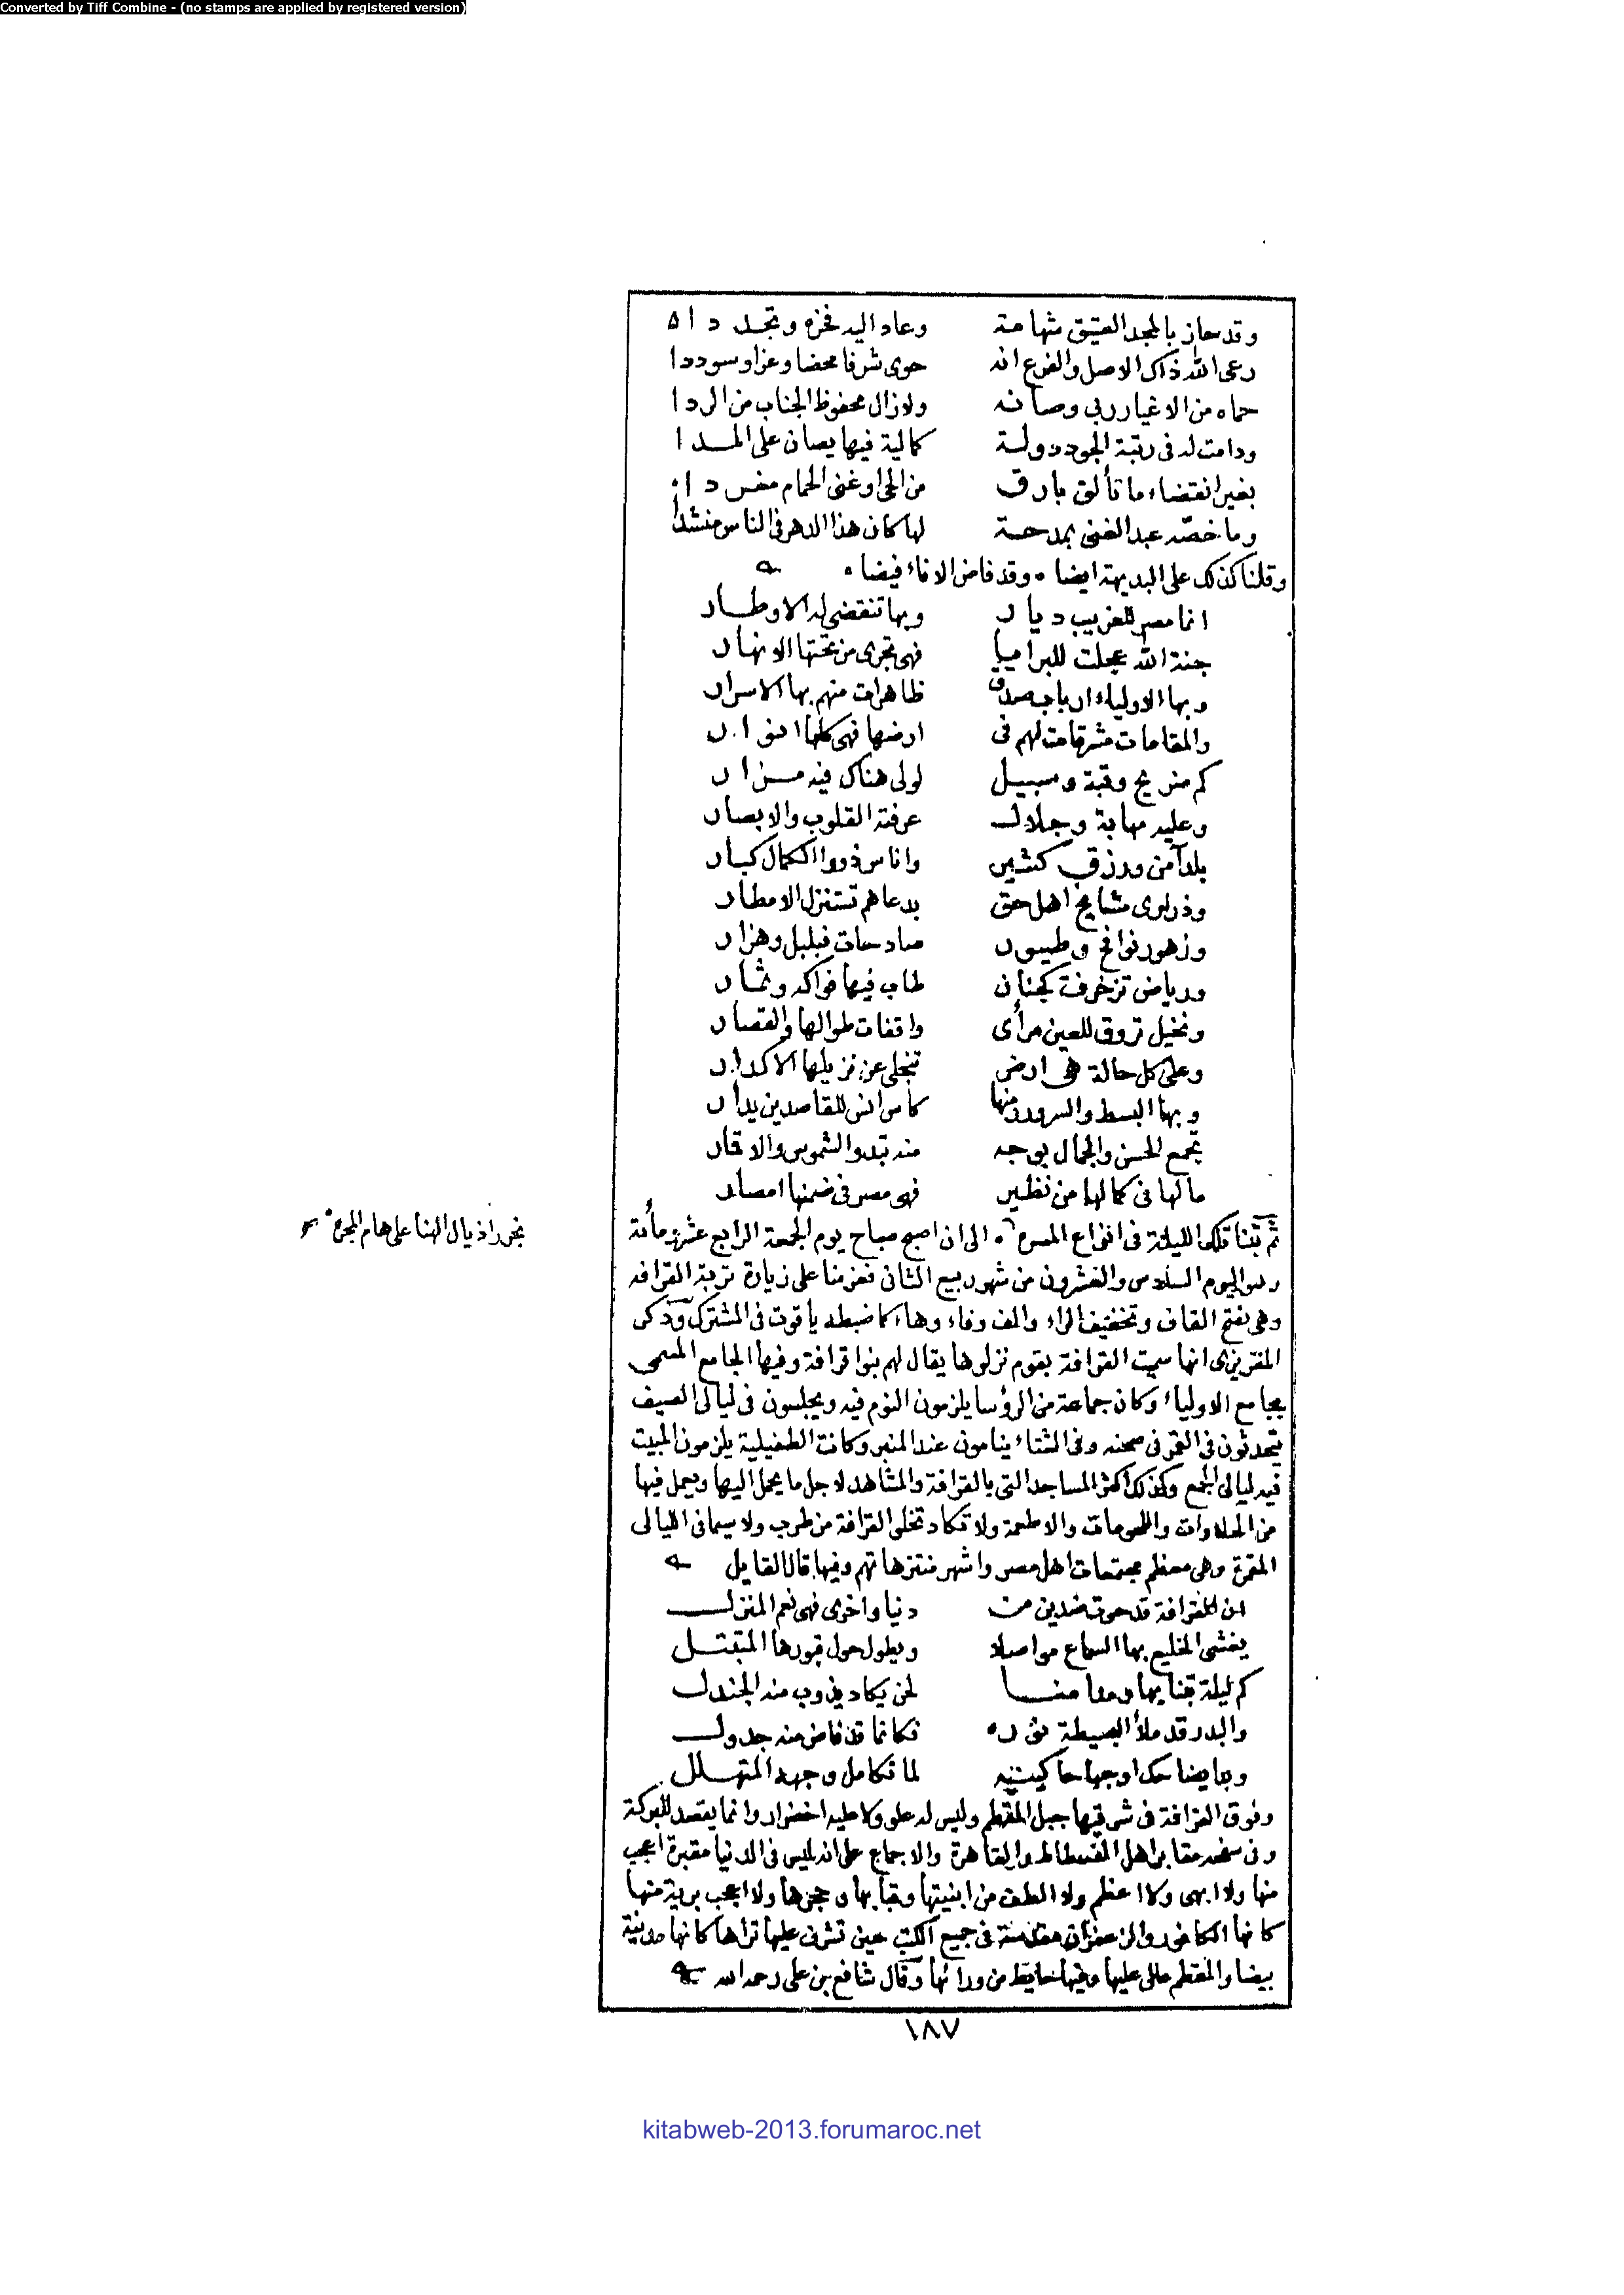 Converted by Tiff Combine - (no stamps are applied by registered version)
وقد حاز بالمجد العتيق شهامة وعاد اليه فخره وتجددا
رعى الله ذاك الاصل والفرع انه حوى شرفا محضا وعزا وسوددا
حماه من الاغيار ربي وصانه ولا زال محفوظ الجناب من الردا
ودامت له في رتبة الجود دولة كمالية فيها يصان على المدا
بغير انقضاء ما تألق بارق من الحي او غنى الحمام مغردا
وما خصّه عبد الغني بمدحة لها كان هذا الدهر في الناس منشدا
وقلنا كذلك على البديهة ايضا ۰ وقد فاض الاناء فيضا ۰
انما مصر للغريب ديار وبها تنقضي له الاوطار
جنة الله عجلت للبرايا فهي تجري من تحتها الانهار
وبها الاولياء ارباب صدق ظاهرات منهم بها الاسرار
والمقامات مشرقات لهم في ارضها فهي كلها انوار
كم ضريح وقبة وسبيل لولي هناك فيه مزار
وعليه مهابة وجلال عرفته القلوب والابصار
بلد آمن ورزق كثير واناس ذووا الكمال كبار
وذر لورى مشايخ اهل حق بدعاهم تستنزل الامطار
وزهور نوافح وطيور صادحات فبلبل وهزار
ورياض تزخرفت كجنان طاب فيها فواكه وثمار
ونخيل تروق للعين مرأى واقفات طوالها والقصار
وعلى كل حالة هي ارض تنجلي عن نزيلها الاكدار
وبها البسط والسرور ومنها كاس انس للقاصدين يدار
تجمع الحسن والجمال بوجه منه تبدو الشموس والاقمار
ما لها في كمالها من نظير فهي مصر في ضمنها امصار
ثم بتنا تلك الليلة في انواع المسره ۰ الى ان اصبح صباح يوم الجمعة الرابع عشر ومأئة
نجرر اذيال الهنا على هام المجره ۰
وهو اليوم السادس والعشرون من شهر ربيع الثاني فعزمنا على زيارة تربة القرافه
وهي بفتح القاف وتخفيف الراء والف وفاء وهاء كما ضبطه ياقوت في المشترك وذكر
المقريزي انها سميت القرافة بقوم نزلوها يقال لهم بنوا قرافة وفيها الجامع المسمى
بجامع الاولياء وكان جماعة من الرؤسا يلزمون النوم فيه ويجلسون في ليالي الصيف
يتحدثون في القمر في صحنه وفي الشتاء ينامون عند المنبر وكانت الطفيلية يلزمون المبيت
فيه ليالي الجمع وكذلك اكثر المساجد التي بالقرافة والمشاهد لاجل ما يحمل اليها ويعمل فيها
من الحلاوات واللحومات والاطعمة ولا تكاد تخلى القرافة من طرب ولا سيما في الليالي
المقمرة وهي معظم مجتمعات اهل مصر واشهر منتزهاتهم وفيها قال القايل
ان القرافة قد حوت ضدين من دنيا واخرى فهي نعم المنزل
يغشى الخليع بها السماع مواصلا ويطول حول قبورها المتبتل
كم ليلة بتنا بها ونديمنا لحن يكاد يذوب منه الجندل
والبدر قد ملأ البسيطة نوره فكانما قد فاض منه جدول
وبدا يضاحك اوجها حاكينه لما تكامل وجهه المتهلل
وفوق القرافة في شرقيها جبل المقطم وليس له علو ولا عليه اخضرار وانما يقصد للبركة
وفي سفحه مقابر اهل الفسطاط والقاهرة والاجماع على انه ليس في الدنيا مقبرة اعجب
منها ولا ابهى ولا اعظم ولا الطف من ابنيتها وقبابها وحجرها ولا اعجب بربة منها
كانها الكافور والزعفران مقدسة في جميع الكتب حين تشرف عليها تراها كانها مدينة
بيضا والمقطم عالي عليها وفيها حايط من ورائها وقال شافع بن علي رحمه الله
١٨٧
kitabweb-2013.forumaroc.net